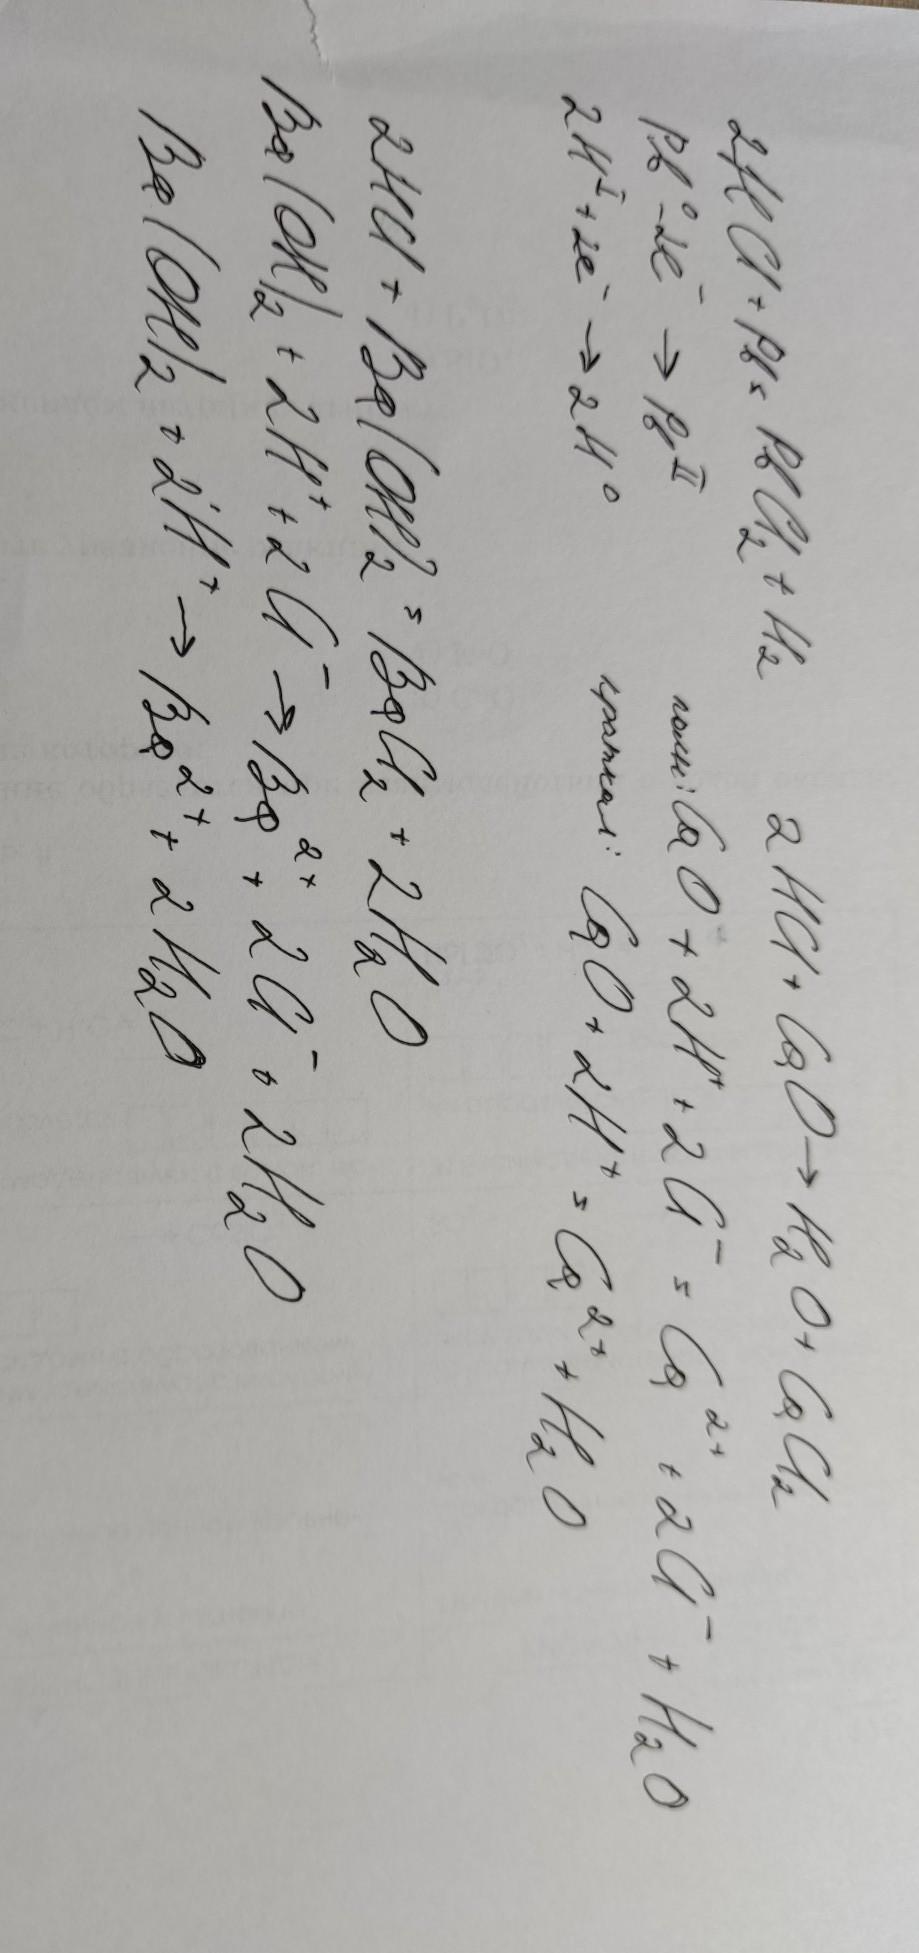 2HCl + Pb = PbCl₂ + H₂
Pb⁰ - 2e⁻ → Pb^II
2H^I + 2e⁻ → 2H⁰
2HCl + CaO → H₂O + CaCl₂
полн: CaO + 2H⁺ + 2Cl⁻ = Ca²⁺ + 2Cl⁻ + H₂O
краткая: CaO + 2H⁺ = Ca²⁺ + H₂O
2HCl + Ba(OH)₂ = BaCl₂ + 2H₂O
Ba(OH)₂ + 2H⁺ + 2Cl⁻ → Ba²⁺ + 2Cl⁻ + 2H₂O
Ba(OH)₂ + 2H⁺ → Ba²⁺ + 2H₂O